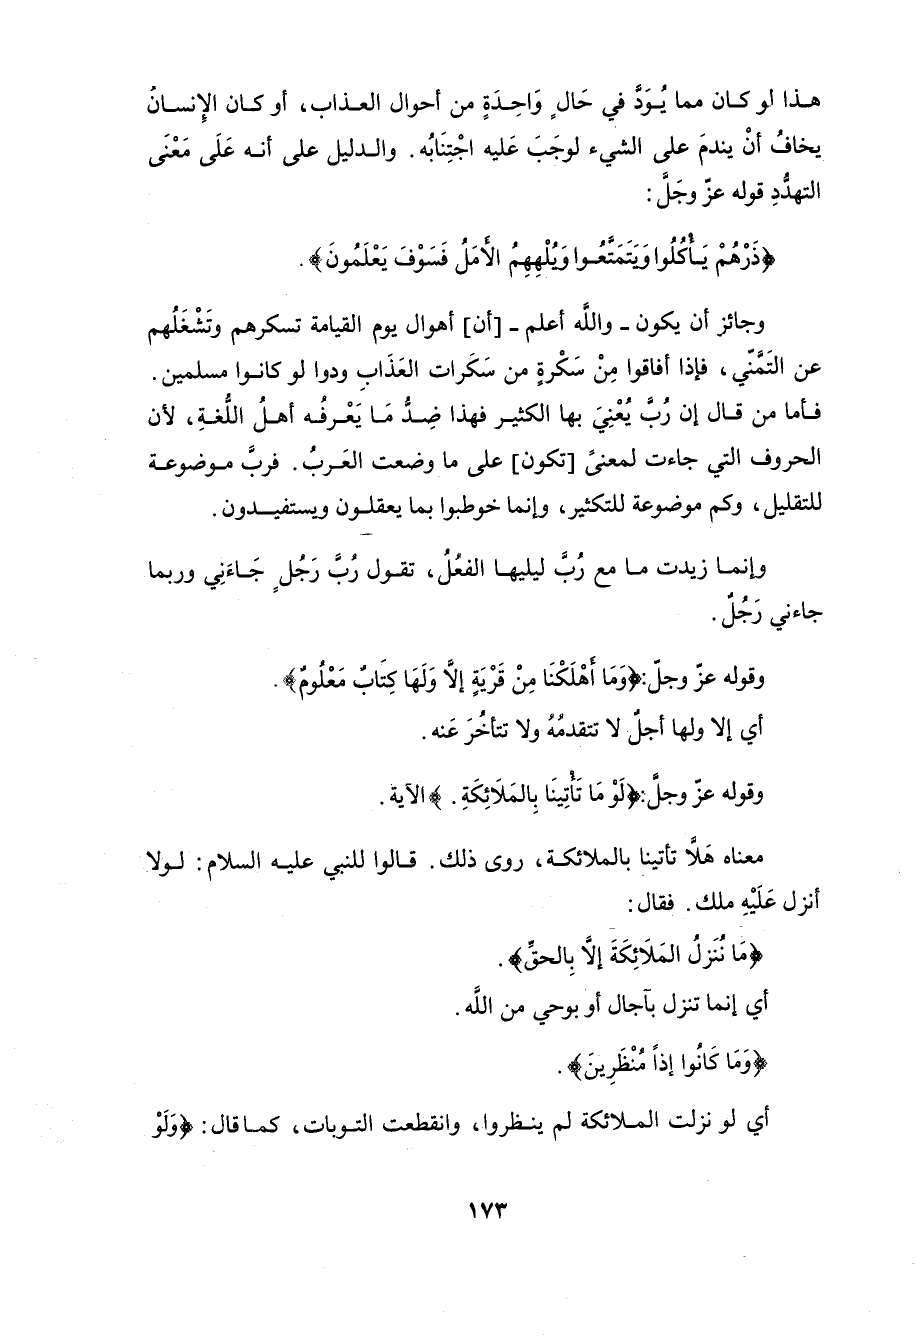 هذا لو كان مما يُوَدَّ في حَالٍ وَاحِدَةٍ من أحوال العذاب، أو كان الإنسانُ
يخافُ أنْ يندمَ على الشيء لوجَبَ عَليه اجْتِنَابُه. والدليل على أنه عَلَى مَعْنَى
التهدُّدِ قوله عزّ وجَلَّ:
﴿ذَرْهُمْ يَأْكُلُوا وَيَتَمَتَّعُوا وَيُلْهِهِمُ الأَمَلُ فَسَوْفَ يَعْلَمُونَ﴾.
وجائز أن يكون - واللَّه أعلم - [أن] أهوال يوم القيامة تسكرهم وتَشْغَلُهم
عن التَمَّنّي، فإذا أفاقوا مِنْ سَكْرةٍ من سَكَرات العَذَابِ ودوا لو كانوا مسلمين.
فأما من قال إن رُبَّ يُعْنِيَ بها الكثير فهذا ضِدُّ مَا يَعْرفُه أهلُ اللُّغةِ، لأن
الحروف التي جاءت لمعنىً [تكون] على ما وضعت العَربُ. فربَّ موضوعة
للتقليل، وكم موضوعة للتكثير، وإنما خوطبوا بما يعقلون ويستفيدون.
وإنما زيدت ما مع رُبَّ ليليها الفعُلُ، تقول رُبَّ رَجُلٍ جَاءَنِي وربما
جاءني رَجُلٌ.
وقوله عزّ وجلّ:﴿وَمَا أَهْلَكْنَا مِنْ قَرْيَةٍ إلَّا وَلَهَا كِتَابٌ مَعْلُومٌ﴾.
أي إلا ولها أجلٌ لا تتقدمُهُ ولا تتأخُرَ عَنه.
وقوله عزّ وجلَّ:﴿لَوْ مَا تَأْتِينَا بِالمَلَائِكَةِ. ﴾ الآية.
معناه هَلَّا تأتينا بالملائكة، روى ذلك. قالوا للنبي عليه السلام: لولا
أنزل عَلَيْهِ ملك. فقال:
﴿مَا نُنَزلُ المَلَائِكَةَ إلَّا بِالحقِّ﴾.
أي إنما تنزل بآجال أو بوحي من اللَّه.
﴿وَمَا كَانُوا إذاً مُنْظَرِينَ﴾.
أي لو نزلت الملائكة لم ينظروا، وانقطعت التوبات، كما قال: ﴿وَلَوْ
١٧٣